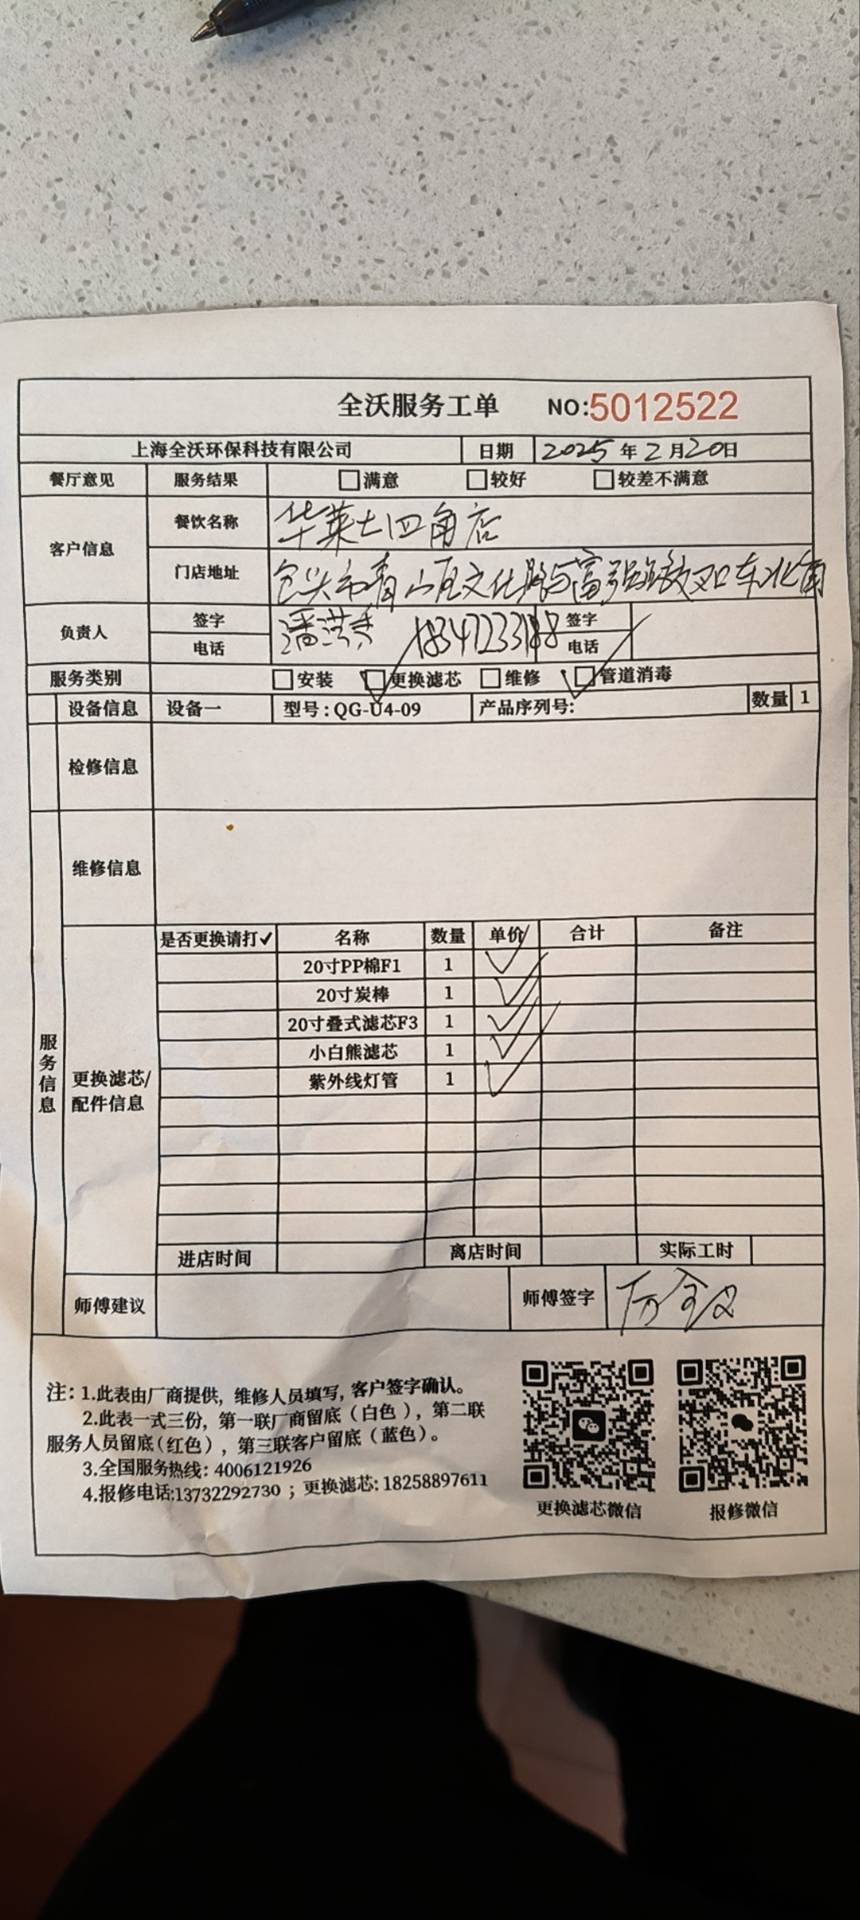 全沃服务工单 NO:5012522
上海全沃环保科技有限公司 日期 2025年2月20日
餐厅意见 服务结果 满意 较好 较差不满意
客户信息 餐饮名称 华莱士四角店
门店地址 包头市青山区文化路与富强路交叉口东北角
负责人 签字 签字
电话 电话
服务类别 安装 更换滤芯 维修 管道消毒
设备信息 设备一 型号:QG-U4-09 产品序列号: 数量 1
检修信息
维修信息
服务信息
更换滤芯/配件信息
是否更换请打✓ 名称 数量 单价 合计 备注
20寸PP棉F1 1 ✓
20寸炭棒 1 ✓
20寸叠式滤芯F3 1 ✓
小白熊滤芯 1 ✓
紫外线灯管 1 ✓
进店时间 离店时间 实际工时
师傅建议 师傅签字
注:1.此表由厂商提供,维修人员填写,客户签字确认。
2.此表一式三份,第一联厂商留底(白色),第二联
服务人员留底(红色),第三联客户留底(蓝色)。
3.全国服务热线:4006121926
4.报修电话:13732292730;更换滤芯:18258897611
更换滤芯微信 报修微信